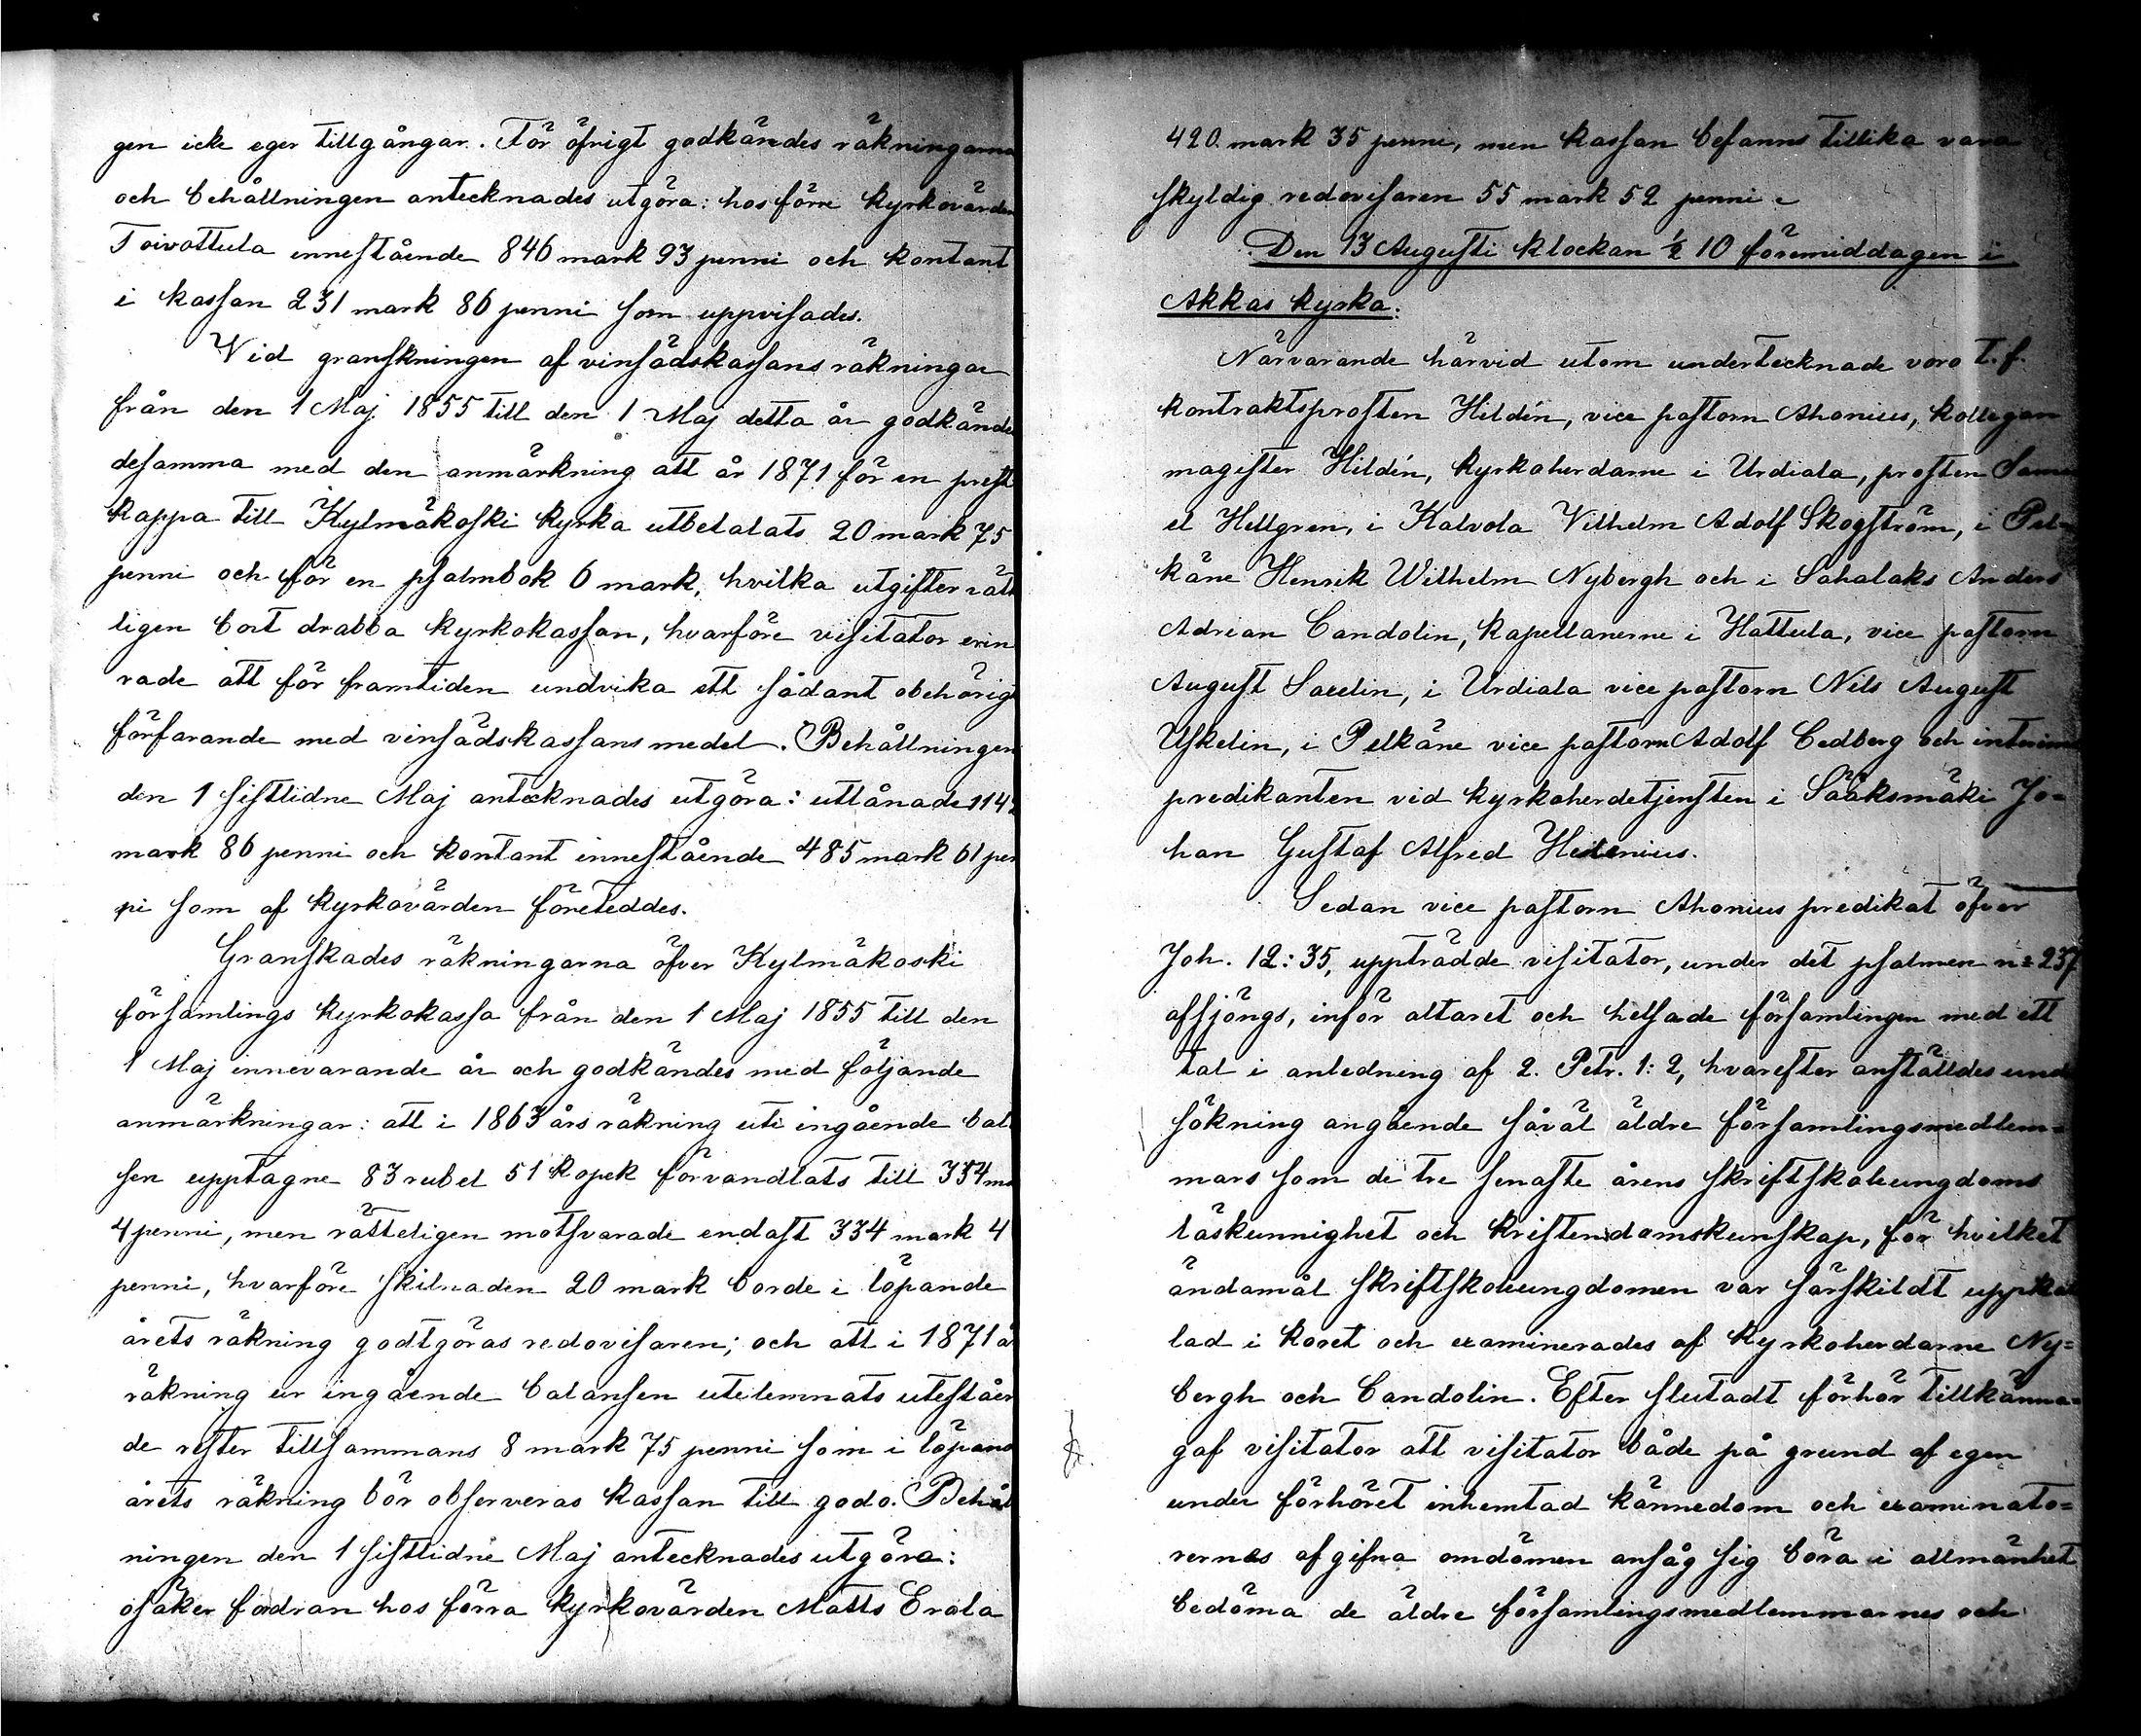 gen icke eger tillgångar. För öfrigt godkändes räkningarna
och behållningen antecknades utgöra: hos förre kyrkovärden
Toivottula innestående 846 mark 93 penni och kontant
i kassan 231 mark 86 penni som uppvisades.
Vid granskningen af vinsädskassans räkningar
från den 1 Maj 1855 till den 1 Maj detta år godkände
desamma med den anmärkning att år 1871 för en prest
kappa till Kylmäkoski kyrka utbetalats 20 mark 75
penni och för en psalmbok 6 mark, hvilka utgifter rätt
ligen bort drabba kyrkokassan, hvarföre visitator erin
rade att för framtiden undvika ett sådant obehörigt
förfarande med vinsädskassans medel. Behållningen
den 1 sistlidne Maj antecknades utgöra: utlånade 114
mark 86 penni och kontant innestående 485 mark 61 pen
ni som af kyrkovärden företeddes.
Granskades räkningarna öfver Kylmäkoski
församlings kyrkokassa från den 1 Maj 1855 till den
1 Maj innevarande år och godkändes med följande
anmärkningar: att i 1863 års räkning uti ingående bal
sen upptagne 83 rubel 51 kopek förvandlats till 354 m
4 penni, men rätteligen motsvarade endast 334 mark 4
penni, hvarföre skilnaden 20 mark borde i löpande
årets räkning godtgöras redovisaren; och att i 1871 å
räkning ur ingående balansen utelemnats uteståen
de rester tillsammans 8 mark 75 penni som i löpand
årets räkning bör observeras kassan till godo. Behål
ningen den 1 sistlidne Maj antecknades utgöra:
osäker fordran hos förra kyrkovärden Matts Erola
420 mark 35 penni, men kassan befanns tillika vara
skyldig redovisaren 55 mark 52 penni.
Den 13 Augusti klockan ½ 10 förmiddagen i
Akkas kyrka:
Närvarande härvid utom undertecknade voro t. f.
kontraktsprosten Hildén, vice pastorn Ahonius, kollegan
magister Hildén, kyrkoherdarne i Urdiala, prosten Samu
el Hellgren, i Kalvola Vilhelm Adolf Skogström, i Pel=
käne Henrik Wilhelm Nybergh och i Sahalaks Anders
Adrian Candolin, kapellanerne i Hattula, vice pastorn
August Saxelin, i Urdiala vice pastorn Nils August
Uskelin, i Pelkäne vice pastorn Adolf Cedberg och interims
predikanten vid kyrkoherdetjensten i Sääksmäki Jo=
han Gustaf Alfred Hedenius.
Sedan vice pastorn Ahonius predikat öfver
Joh. 12:35, uppträdde visitator, under det psalmen n:o 237
afsjöngs, inför altaret och helsade församlingen med ett
tal i anledning af 2. Petr. 1:2, hvarefter anställdes und
sökning angående såväl äldre församlingsmedlem=
mars som de tre senaste årens skriftskoleungdoms
läskunnighet och kristendomskunskap, för hvilket
ändamål skriftskoleungdomen var särskildt uppkal
lad i koret och examinerades af kyrkoherdarne Ny=
bergh och Candolin. Efter slutadt förhör tillkänna=
gaf visitator att visitator både på grund af egen
under förhöret inhemtad kännedom och examinato=
rernas afgifna omdömen ansåg sig böra i allmänhet
bedöma de äldre församlingsmedlemmarnes och